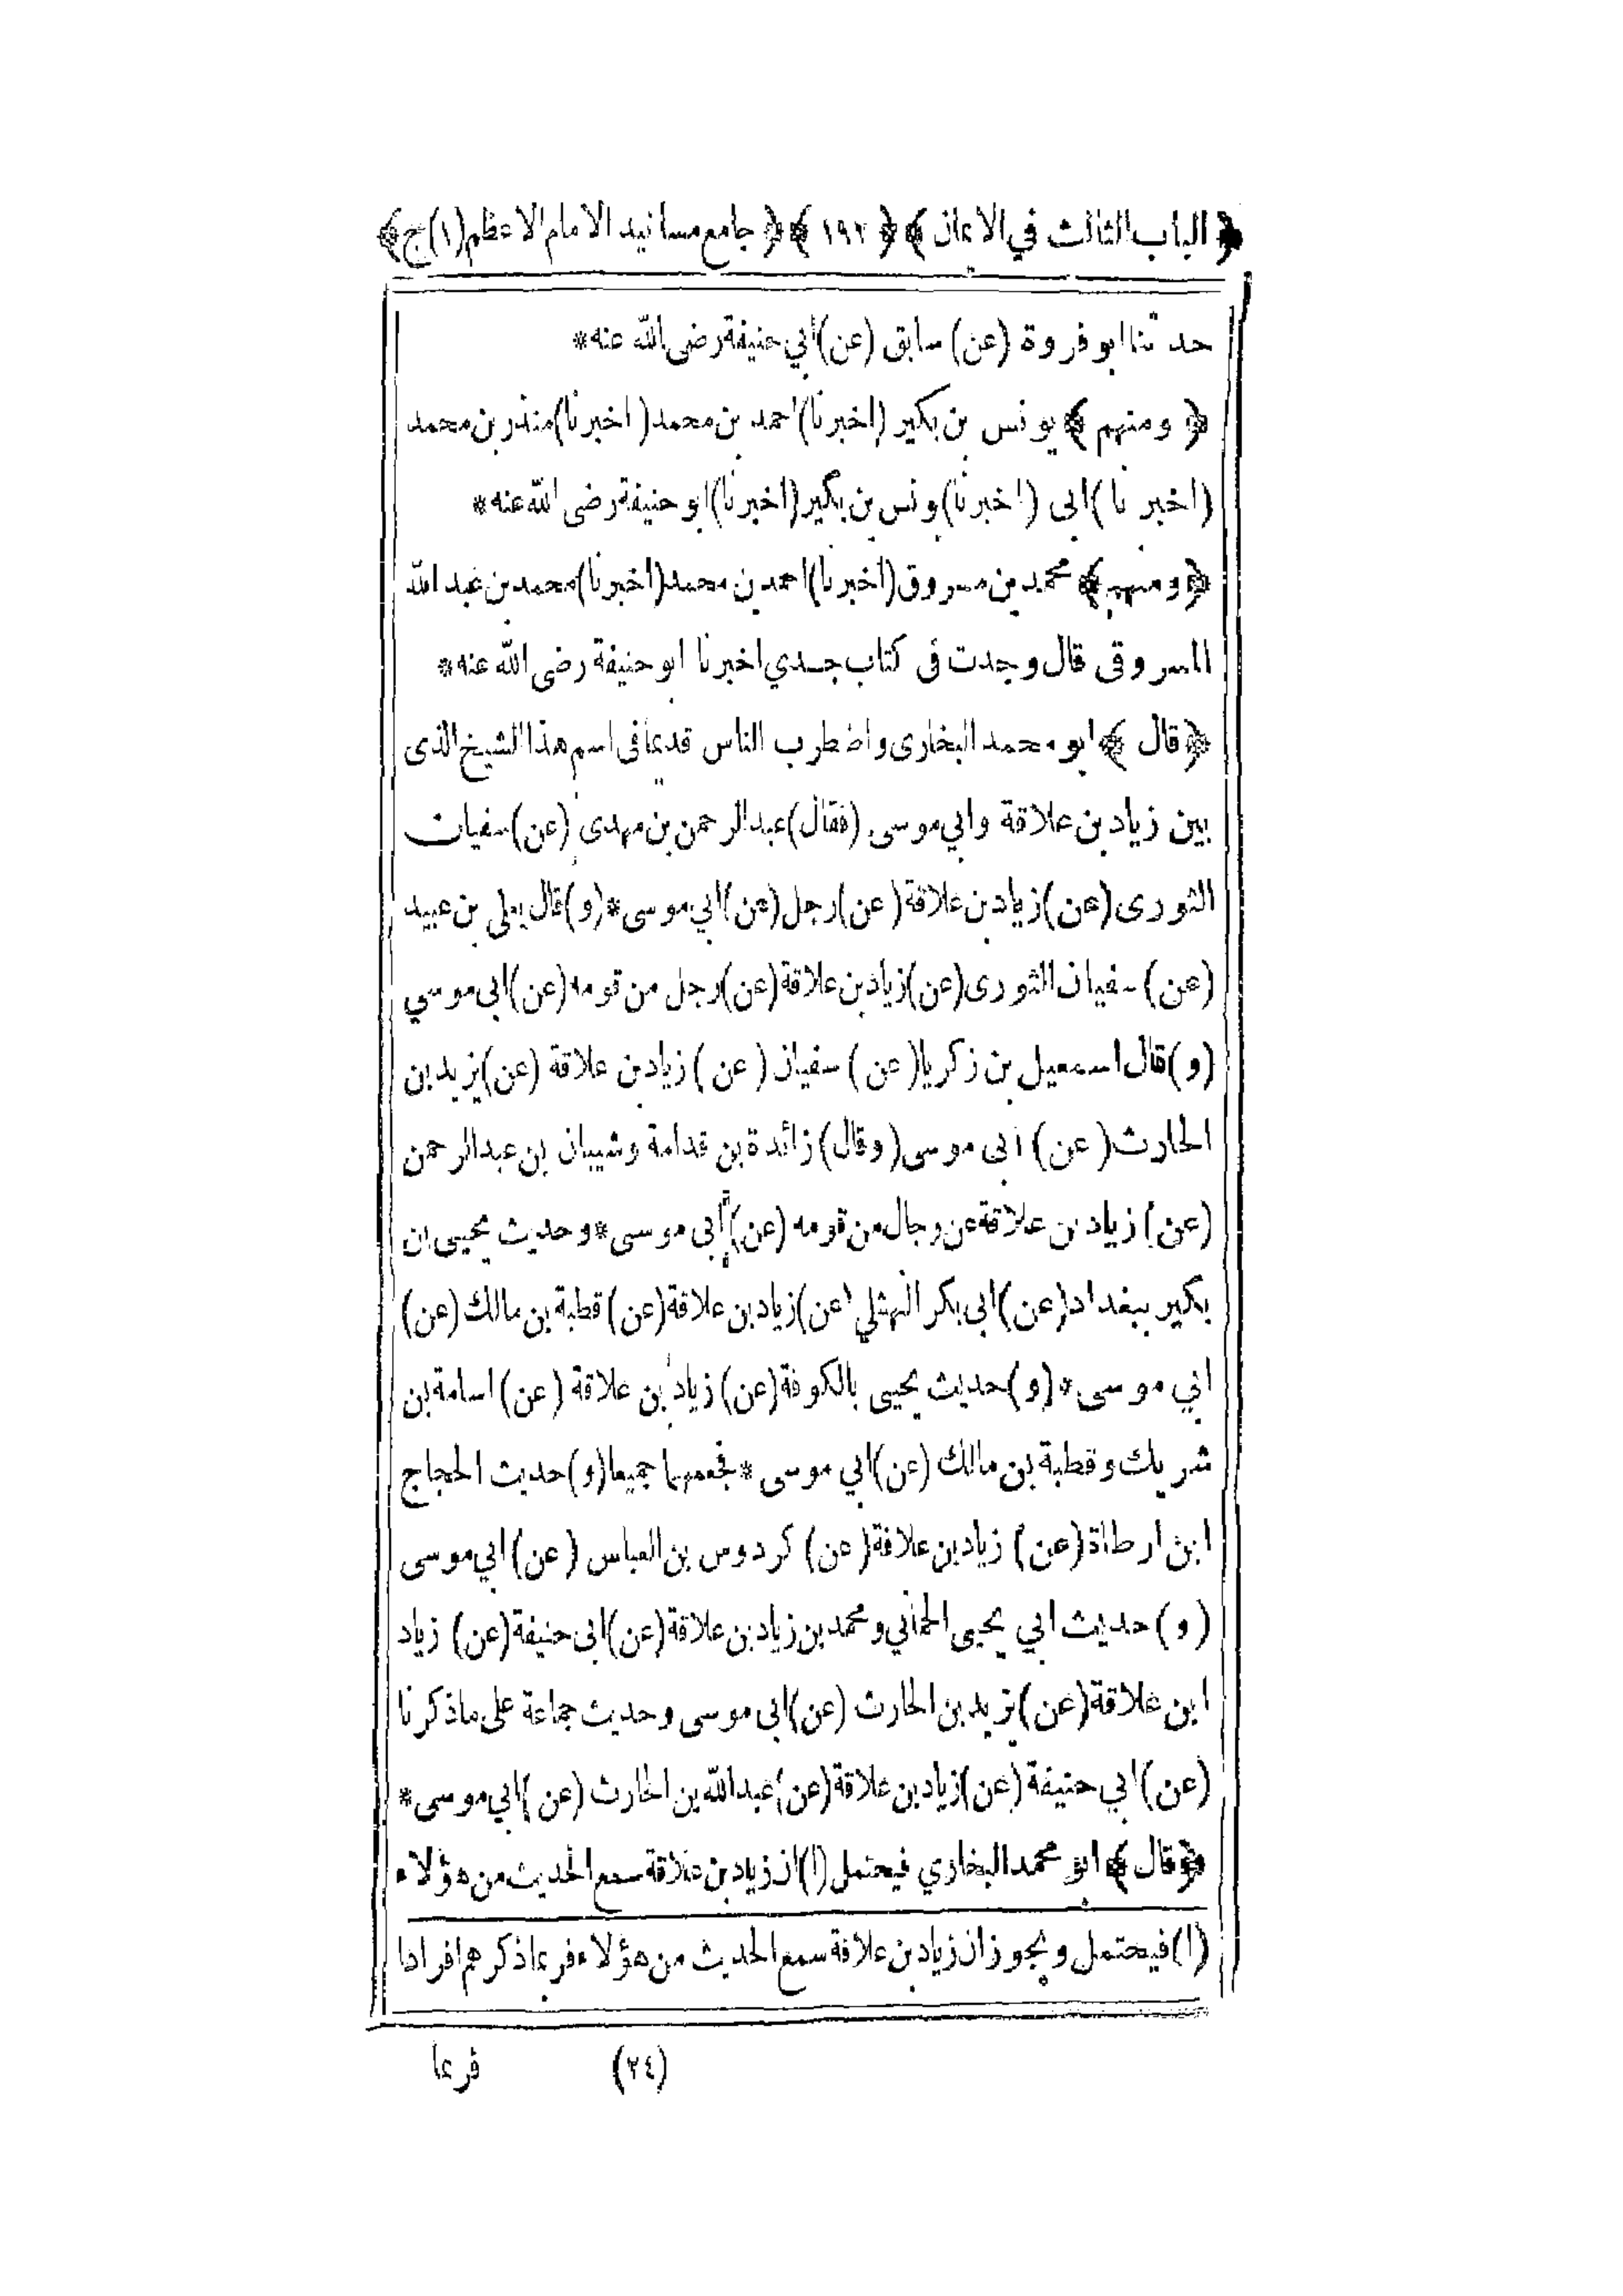 ﴿ الباب الثالث في الايمان ﴾ ﴿ ١٩٣ ﴾ ﴿ جامع مسانيد الامام الاعظم (١) ج ﴾
حدثنا ابو فروة (عن) سابق (عن) أبي حنيفة رضى الله عنه*
﴿ ومنهم ﴾ يونس بن بكير (اخبرنا) احمد بن محمد (اخبرنا) منذر بن محمد
(اخبرنا) ابى (اخبرنا) يونس بن بكير (اخبرنا) ابو حنيفة رضى الله عنه*
﴿ ومنهم ﴾ محمد بن مسروق (اخبرنا) احمد بن محمد (اخبرنا) محمد بن عبد الله
المسروقى قال وجدت فى كتاب جدي اخبرنا ابو حنيفة رضى الله عنه*
﴿ قال ﴾ ابو محمد البخارى واضطرب الناس قديما فى اسم هذا الشيخ الذى
بين زياد بن علاقة وابي موسى (فقال) عبد الرحمن بن مهدى (عن) سفيان
الثورى (عن) زياد بن علاقة (عن) رجل (عن) ابي موسى* (و) قال يعلى بن عبيد
(عن) سفيان الثورى (عن) زياد بن علاقة (عن) رجل من قومه (عن) ابى موسي
(و) قال اسمعيل بن زكريا (عن) سفيان (عن) زياد بن علاقة (عن) يزيد بن
الحارث (عن) أبى موسى (وقال) زائدة بن قدامة وشيبان بن عبد الرحمن
(عن) زياد بن علاقة عن رجال من قومه (عن) أبى موسى* وحديث يحيى ابن
بكير ببغداد (عن) ابى بكر النهشلي (عن) زياد بن علاقة (عن) قطبة بن مالك (عن)
ابي موسى* (و) حديث يحيى بالكوفة (عن) زياد بن علاقة (عن) اسامة بن
شريك وقطبة بن مالك (عن) ابي موسى* فجمعهما جميعا (و) حديث الحجاج
ابن ارطاة (عن) زياد بن علاقة (عن) كردوس بن العباس (عن) ابي موسى
(و) حديث ابي يحيى الحماني ومحمد بن زياد بن علاقة (عن) ابى حنيفة (عن) زياد
ابن علاقة (عن) يزيد بن الحارث (عن) ابى موسى وحديث جماعة على ما ذكرنا
(عن) ابي حنيفة (عن) زياد بن علاقة (عن) عبد الله بن الحارث (عن) ابي موسى*
﴿ وقال ﴾ ابو محمد البخاري فيحتمل (١) ان زياد بن علاقة سمع الحديث من هؤلاء
(١) فيحتمل ويجوز ان زياد بن علاقة سمع الحديث من هؤلاء فربما ذكرهم افرادا
(٢٤) فربما